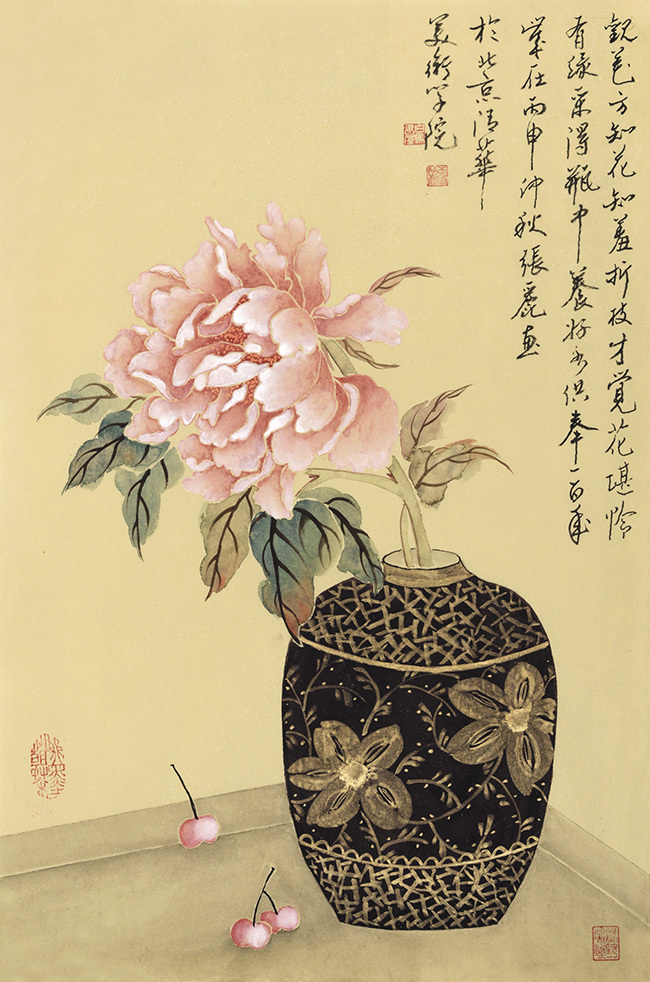 观花方知花知羞折枝才觉花堪怜
有缘采得瓶中养好水供奉一百年
岁在丙申仲秋張麗画
於北京清華
美術学院